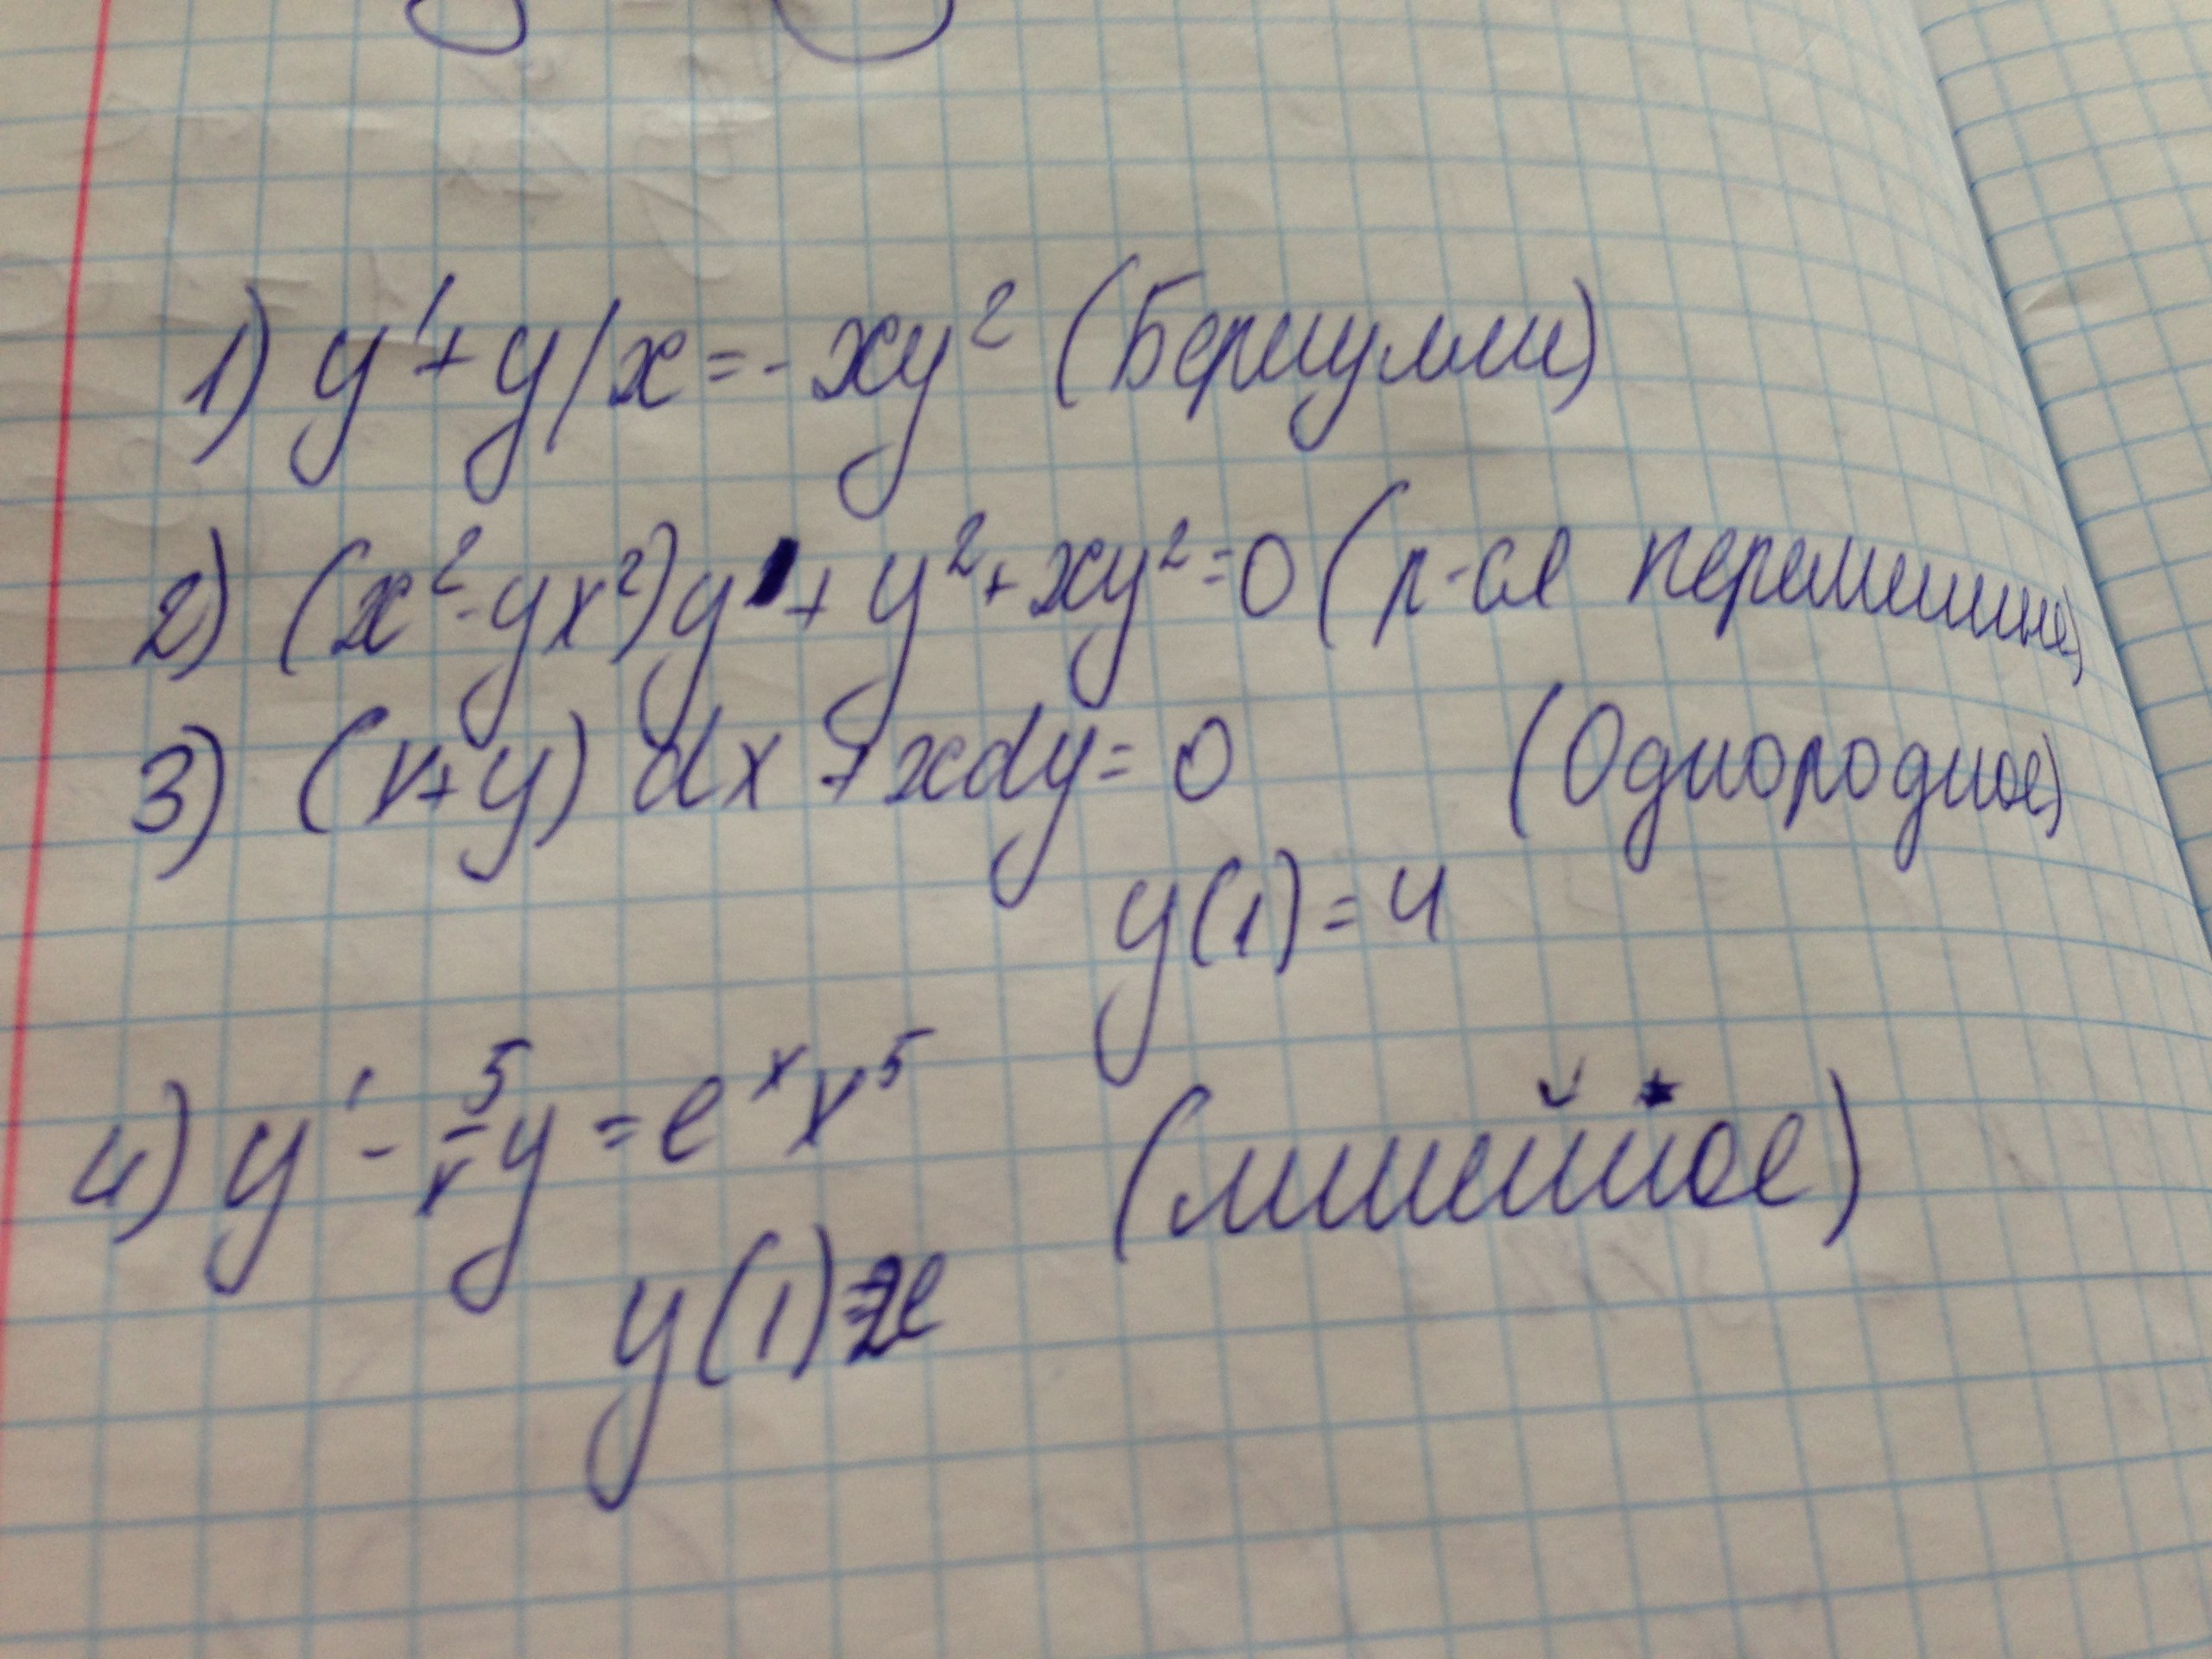 1) y' + y/x = - xy² (Бернулли)
2) (x² - yx²)y' + y² + xy² = 0 (р-ся переменные)
3) (x+y) dx + xdy = 0 (Однородное)
y(1) = 4
4) y' - 5/x y = eˣx⁵ (линейное)
y(1)=2e